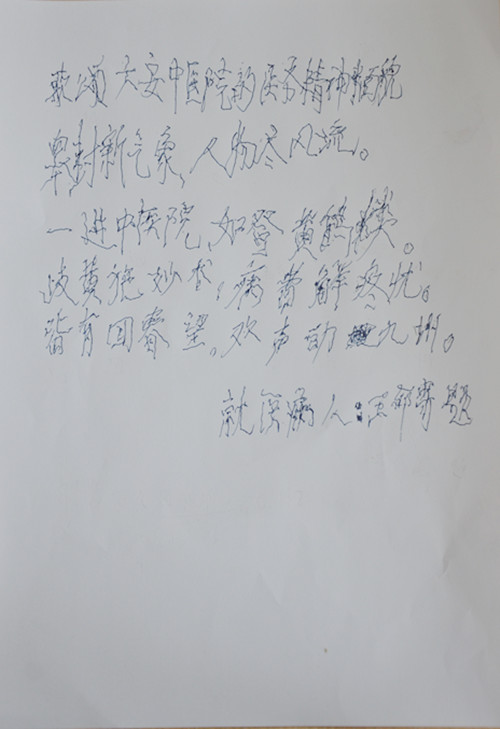 歌颂大安中医院的医务精神面貌
单封新气象,人物尽风流。
一进中医院,如登黄鹤楼。
岐黄施妙术,病员解疼忧。
皆有回春望,欢声动九州。
就医病人:王
题